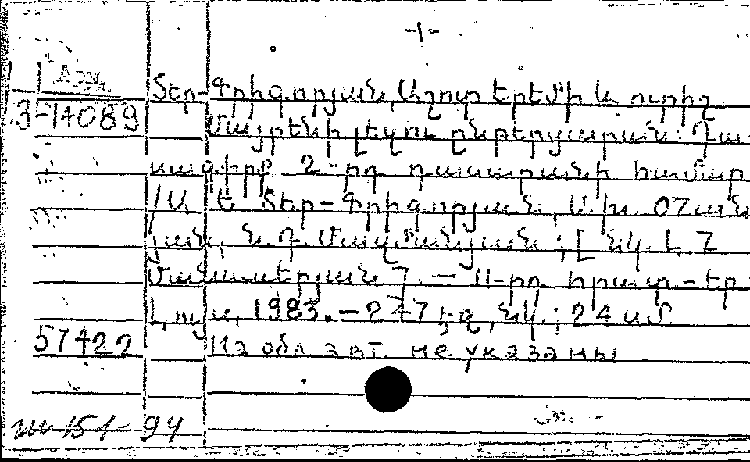 -1-
Տեր-Գրիգորյան, Աշոտ Երեմի և ուրիշ
3-14089
Մայրենի լեզու ընթերցարան: Դա
սագիրք 2-րդ դասարանի համար
/Ա. Ե. Տեր-Գրիգորյան, Ս. Խ. Օհան
յան, Ն.
[նկ.
11-րդ հրատ-եր.
Լույս, 1983.-247 էջ, նկ.; 24 սմ
57422
На обл авт. не указаны
94